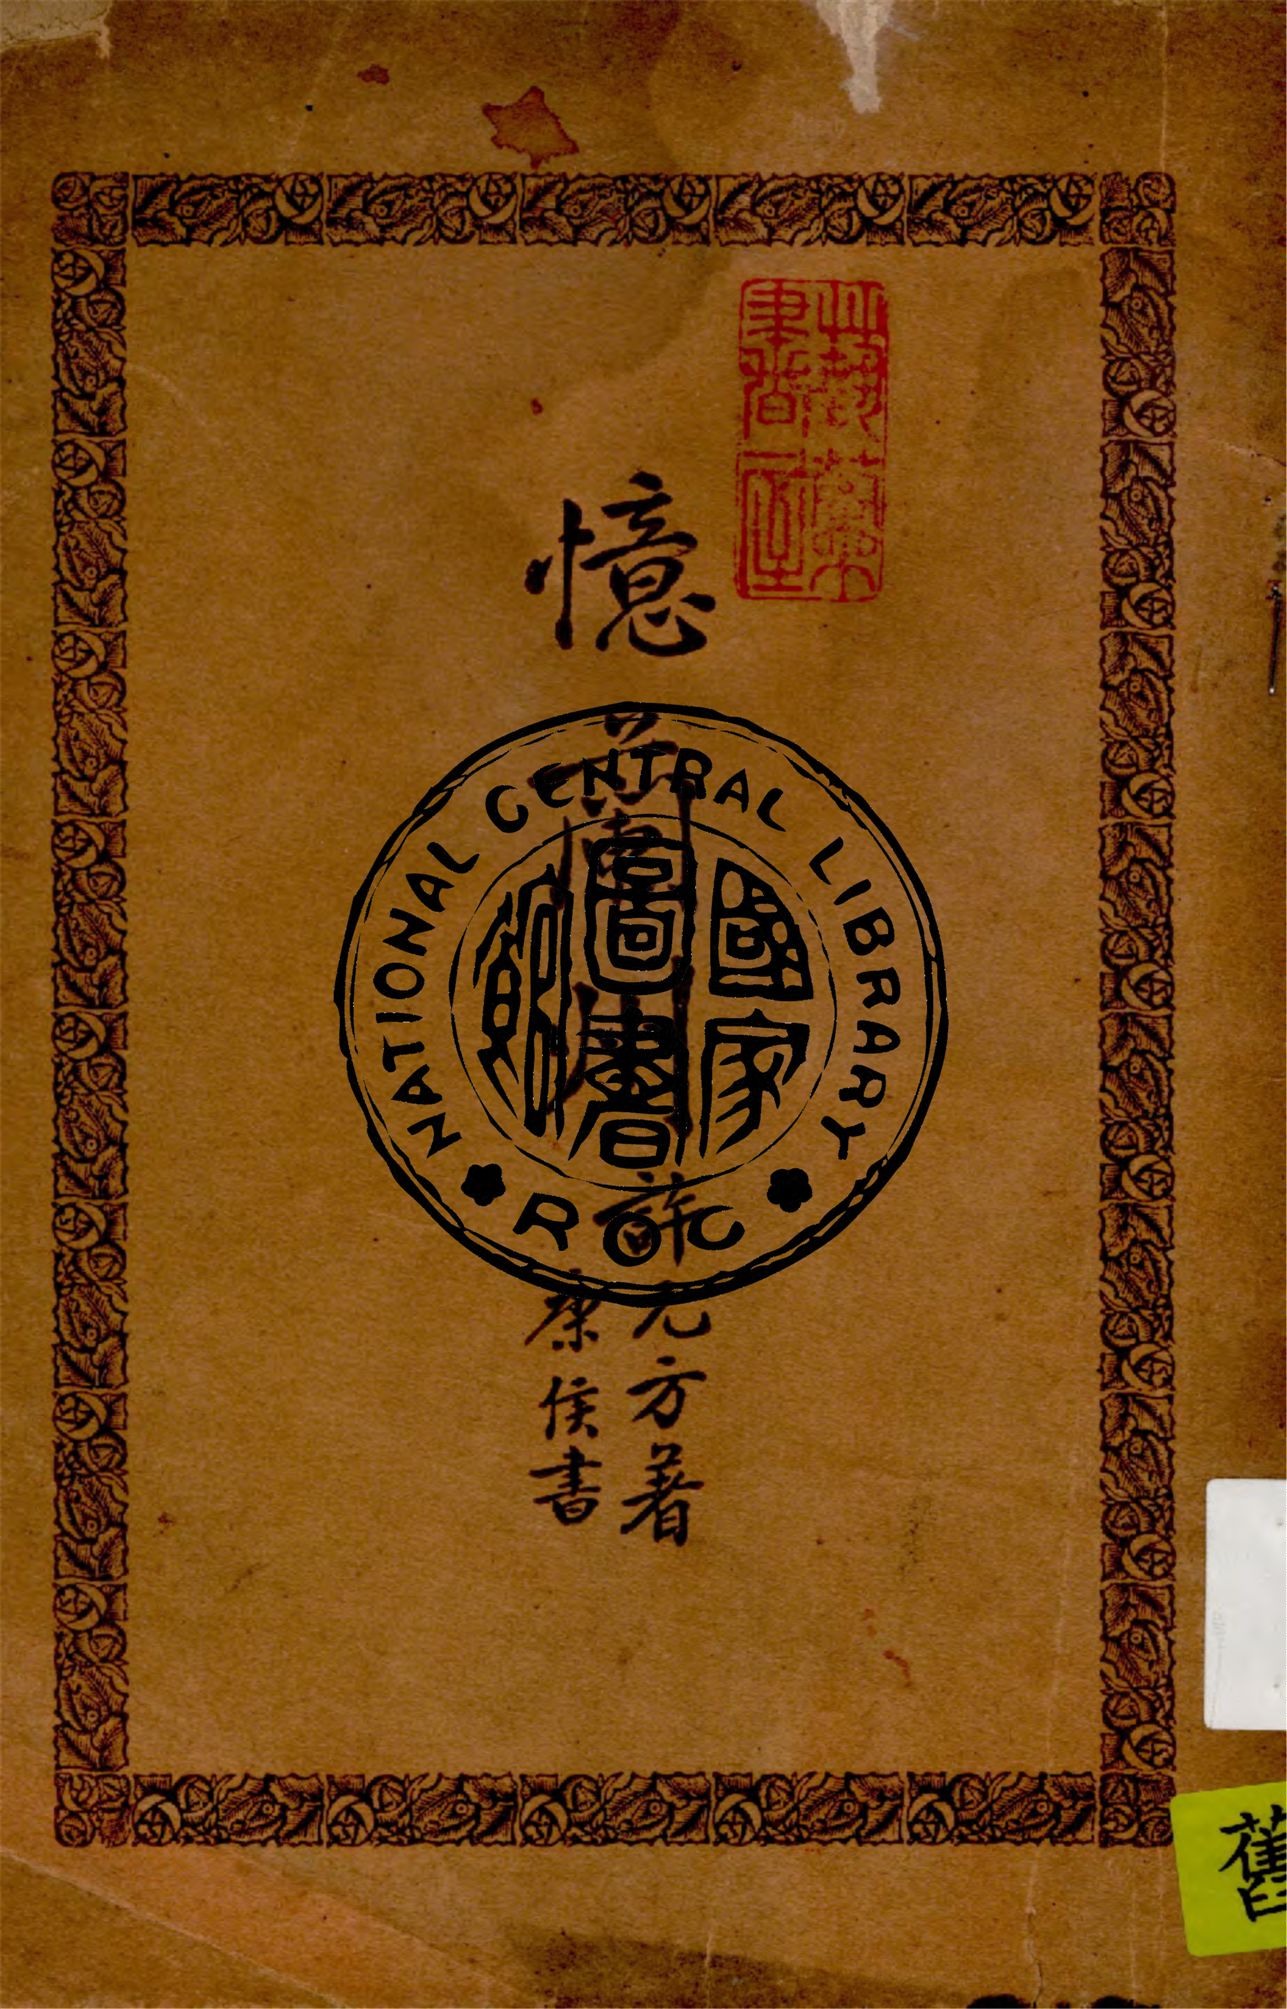 憶
許元方著
康侯書
NATIONAL CENTRAL LIBRARY
ROC
國家
圖書
館
舊